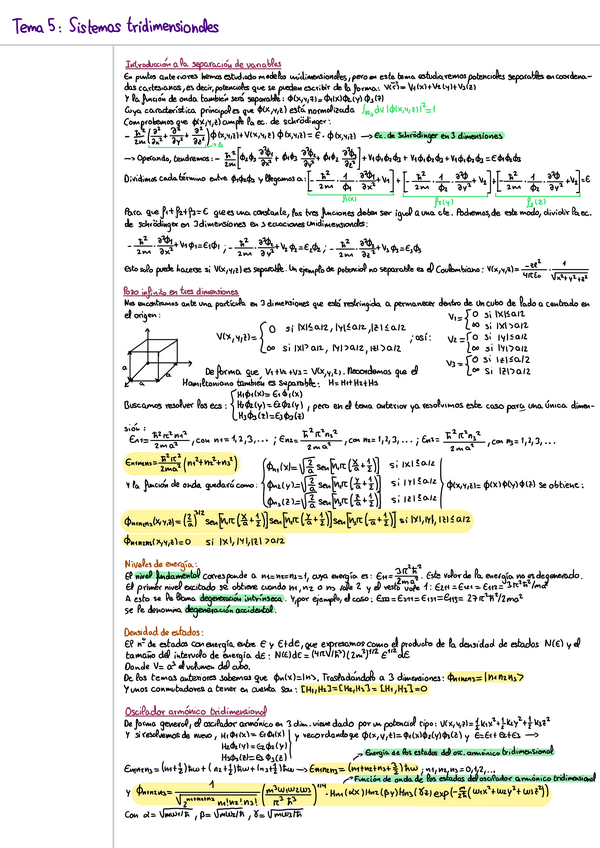 Tema 5: Sistemas tridimensionales
Introducción a la separación de variables
En puntos anteriores hemos estudiado modelos unidimensionales, pero en este tema estudiaremos potenciales separables en coordena-
das cartesianas, es decir, potenciales que se pueden escribir de la forma: V(r⃗) = V₁(x)+V₂(y)+V₃(z)
Y la función de onda también será separable: ϕ(x,y,z)= ϕ₁(x)ϕ₂(y)ϕ₃(z)
Cuya característica principal es que ϕ(x,y,z) está normalizada ∫ dV |ϕ(x,y,z)|²=1
Comprobemos que ϕ(x,y,z) cumple la ec. de schrödinger:
-ħ²/2m (∂²/∂x² + ∂²/∂y² + ∂²/∂z²) ϕ(x,y,z)+V(x,y,z) ϕ(x,y,z) = E · ϕ(x,y,z) → Ec. de Schrödinger en 3 dimensiones
→ Operando, tendremos: -ħ²/2m [ϕ₂ϕ₃ ∂²ϕ₁/∂x² + ϕ₁ϕ₃ ∂²ϕ₂/∂y² + ϕ₁ϕ₂ ∂²ϕ₃/∂z²] + V₁ϕ₁ϕ₂ϕ₃ + V₂ϕ₁ϕ₂ϕ₃ + V₃ϕ₁ϕ₂ϕ₃ = Eϕ₁ϕ₂ϕ₃
Dividimos cada término entre ϕ₁ϕ₂ϕ₃ y llegamos a: [-ħ²/2m · 1/ϕ₁ · ∂²ϕ₁/∂x² + V₁] + [-ħ²/2m · 1/ϕ₂ · ∂²ϕ₂/∂y² + V₂] + [-ħ²/2m · 1/ϕ₃ · ∂²ϕ₃/∂z² + V₃] = E
f₁(x) f₂(y) f₃(z)
Para que f₁+f₂+f₃=E que es una constante, las tres funciones deben ser igual a una cte. Podremos, de este modo, dividir la ec.
de schrödinger en 3 dimensiones en 3 ecuaciones unidimensionales:
-ħ²/2m · ∂²ϕ₁/∂x² + V₁ϕ₁=E₁ϕ₁ ; -ħ²/2m · ∂²ϕ₂/∂y² + V₂ϕ₂=E₂ϕ₂ ; -ħ²/2m · ∂²ϕ₃/∂z² + V₃ϕ₃=E₃ϕ₃
Esto solo puede hacerse si V(x,y,z) es separable. Un ejemplo de potencial no separable es el Coulombiano: V(x,y,z)= -ze²/4πε₀ · 1/√x²+y²+z²
Pozo infinito en tres dimensiones
Nos encontramos ante una partícula en 3 dimensiones que está restringida a permanecer dentro de un cubo de lado a centrado en
el origen:
V(x,y,z)= { 0 si |x|≤a/2, |y|≤a/2, |z|≤a/2
∞ si |x|>a/2, |y|>a/2, |z|>a/2
; así:
V₁= { 0 si |x|≤a/2
∞ si |x|>a/2
V₂= { 0 si |y|≤a/2
∞ si |y|>a/2
V₃= { 0 si |z|≤a/2
∞ si |z|>a/2
a
a
a
De forma que V₁+V₂+V₃= V(x,y,z). Recordemos que el
Hamiltoniano también es separable: H=H₁+H₂+H₃
Buscamos resolver las ecs: { H₁ϕ₁(x)=E₁ϕ₁(x)
H₂ϕ₂(y)=E₂ϕ₂(y)
H₃ϕ₃(z)=E₃ϕ₃(z)
, pero en el tema anterior ya resolvimos este caso para una única dimen-
sión:
En₁= ħ²π²n₁²/2ma², con n₁=1,2,3,... ; En₂= ħ²π²n₂²/2ma², con n₂=1,2,3,... ; En₃= ħ²π²n₃²/2ma², con n₃=1,2,3,...
En₁n₂n₃= ħ²π²/2ma² (n₁²+n₂²+n₃²)
Y la función de onda quedará como: { ϕn₁(x)=√2/a sen[n₁π(x/a+1/2)] si |x|≤a/2
ϕn₂(y)=√2/a sen[n₂π(y/a+1/2)] si |y|≤a/2
ϕn₃(z)=√2/a sen[n₃π(z/a+1/2)] si |z|≤a/2
ϕ(x,y,z)= ϕ(x)ϕ(y)ϕ(z) se obtiene:
ϕn₁n₂n₃(x,y,z)=(2/a)^3/2 sen[n₁π(x/a+1/2)] sen[n₂π(y/a+1/2)] sen[n₃π(z/a+1/2)] si |x|,|y|,|z|≤a/2
ϕn₁n₂n₃(x,y,z)=0 si |x|,|y|,|z|>a/2
Niveles de energía:
El nivel fundamental corresponde a n₁=n₂=n₃=1, cuya energía es: E₁₁₁= 3π²ħ²/2ma². Este valor de la energía no es degenerado.
El primer nivel excitado se obtiene cuando n₁, n₂ o n₃ vale 2 y el resto vale 1: E₂₁₁=E₁₂₁=E₁₁₂= 3π²ħ²/ma²
A esto se le llama degeneración intrínseca. Y, por ejemplo, el caso: E₃₃₃=E₅₁₁=E₁₅₁=E₁₁₅= 27π²ħ²/2ma²
se le denomina degeneración accidental.
Densidad de estados:
El nº de estados con energía entre E y E+dE, que expresamos como el producto de la densidad de estados N(E) y el
tamaño del intervalo de energía dE: N(E)dE = (4πV/h³)(2m³)^1/2 E^1/2 dE
Donde V=a³ el volumen del cubo.
De los temas anteriores sabemos que ϕn(x)=|n>. Trasladándolo a 3 dimensiones: ϕn₁n₂n₃=|n₁n₂n₃>
Y unos conmutadores a tener en cuenta son: [H₁,H₂]=[H₂,H₃]=[H₁,H₃]=0
Oscilador armónico tridimensional
De forma general, el oscilador armónico en 3 dim. viene dado por un potencial tipo: V(x,y,z)=½k₁x²+½k₂y²+½k₃z²
Y si resolvemos de nuevo, H₁ϕ₁(x)=E₁ϕ₁(x)
H₂ϕ₂(y)=E₂ϕ₂(y)
H₃ϕ₃(z)=E₃ϕ₃(z)
y recordando que ϕ(x,y,z)=ϕ₁(x)ϕ₂(y)ϕ₃(z) y E=E₁+E₂+E₃ →
Energía de los estados del osc. armónico tridimensional
En₁n₂n₃=(n₁+½)ħω+(n₂+½)ħω+(n₃+½)ħω → En₁n₂n₃=(n₁+n₂+n₃+3/2)ħω ; n₁,n₂,n₃=0,1,2,...
Función de onda de los estados del oscilador armónico tridimensional
Y ϕn₁n₂n₃= 1/√2^n₁+n₂+n₃ n₁!n₂!n₃! (m³ω₁ω₂ω₃/π³ħ³)^1/4 · Hn₁(αx)Hn₂(βy)Hn₃(γz) exp(-m/2ħ(ω₁x²+ω₂y²+ω₃z²))
Con α=√mω₁/ħ, β=√mω₂/ħ, γ=√mω₃/ħ